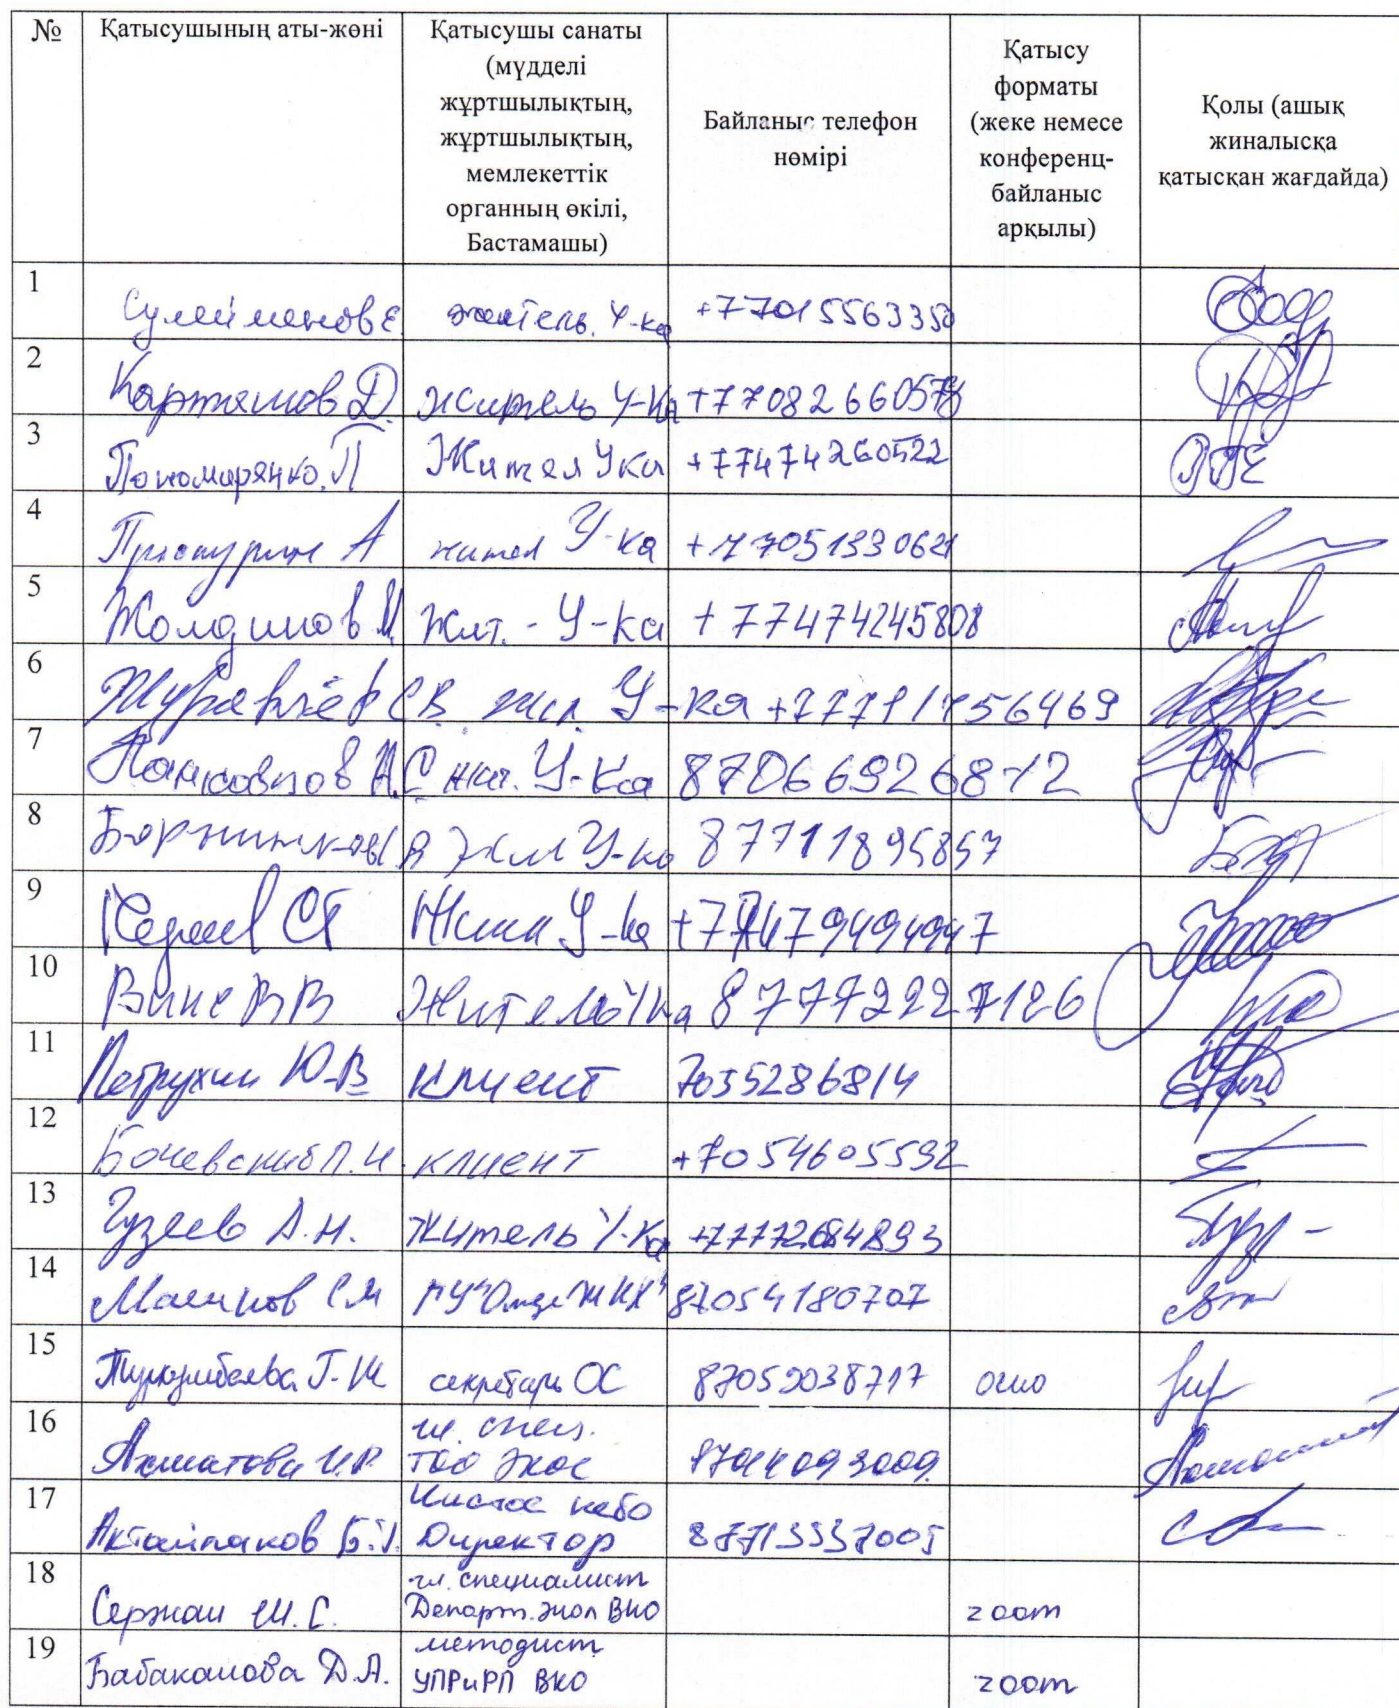 №
Қатысушының аты-жөні
Қатысушы санаты
(мүдделі
жұртшылықтың,
жұртшылықтың,
мемлекеттік
органның өкілі,
Бастамашы)
Байланыс телефон
нөмірі
Қатысу
форматы
(жеке немесе
конференц-
байланыс
арқылы)
Қолы (ашық
жиналысқа
қатысқан жағдайда)
1
Сулейменов Е житель У-ка +77015563350
2
Карташов Д. житель У-ка +77082660578
3
Пономаренко.П Жител Ука +77474260522
4
А жител У-ка +77051330621
5
Жит. - У-ка +77474245808
6
Журавлёв СВ жил. У-ка +77711756469
7
жит. У-ка 87066926872
8
В Жил У-ка 87711895857
9
У-ка +77479494947
10
ВВ Житель Ука 87772227126
11
Петрухин Ю.В клиент 7035286814
12
Бочевский П.И. клиент +7054605592
13
Гузеев А.Н. житель У-ка +77772684893
14
См ГУ"Отдел ЖКХ" 87054180707
15
Г.Ж секретарь ОС 87052038717 очно
16
гл. спец.
Ахматова И.Р ТОО Экос 87014093009
17
Чистое небо
Актайлаков Б.Т. Директор 87713537005
18
гл. специалист
Сержан Ш.С. Департ. экол ВКО zoom
19
методист
Бабаканова Д.А. УПРиРП ВКО zoom